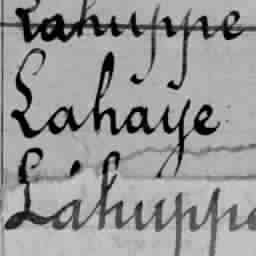 Lahuppe
Lahaye
Lahuppe